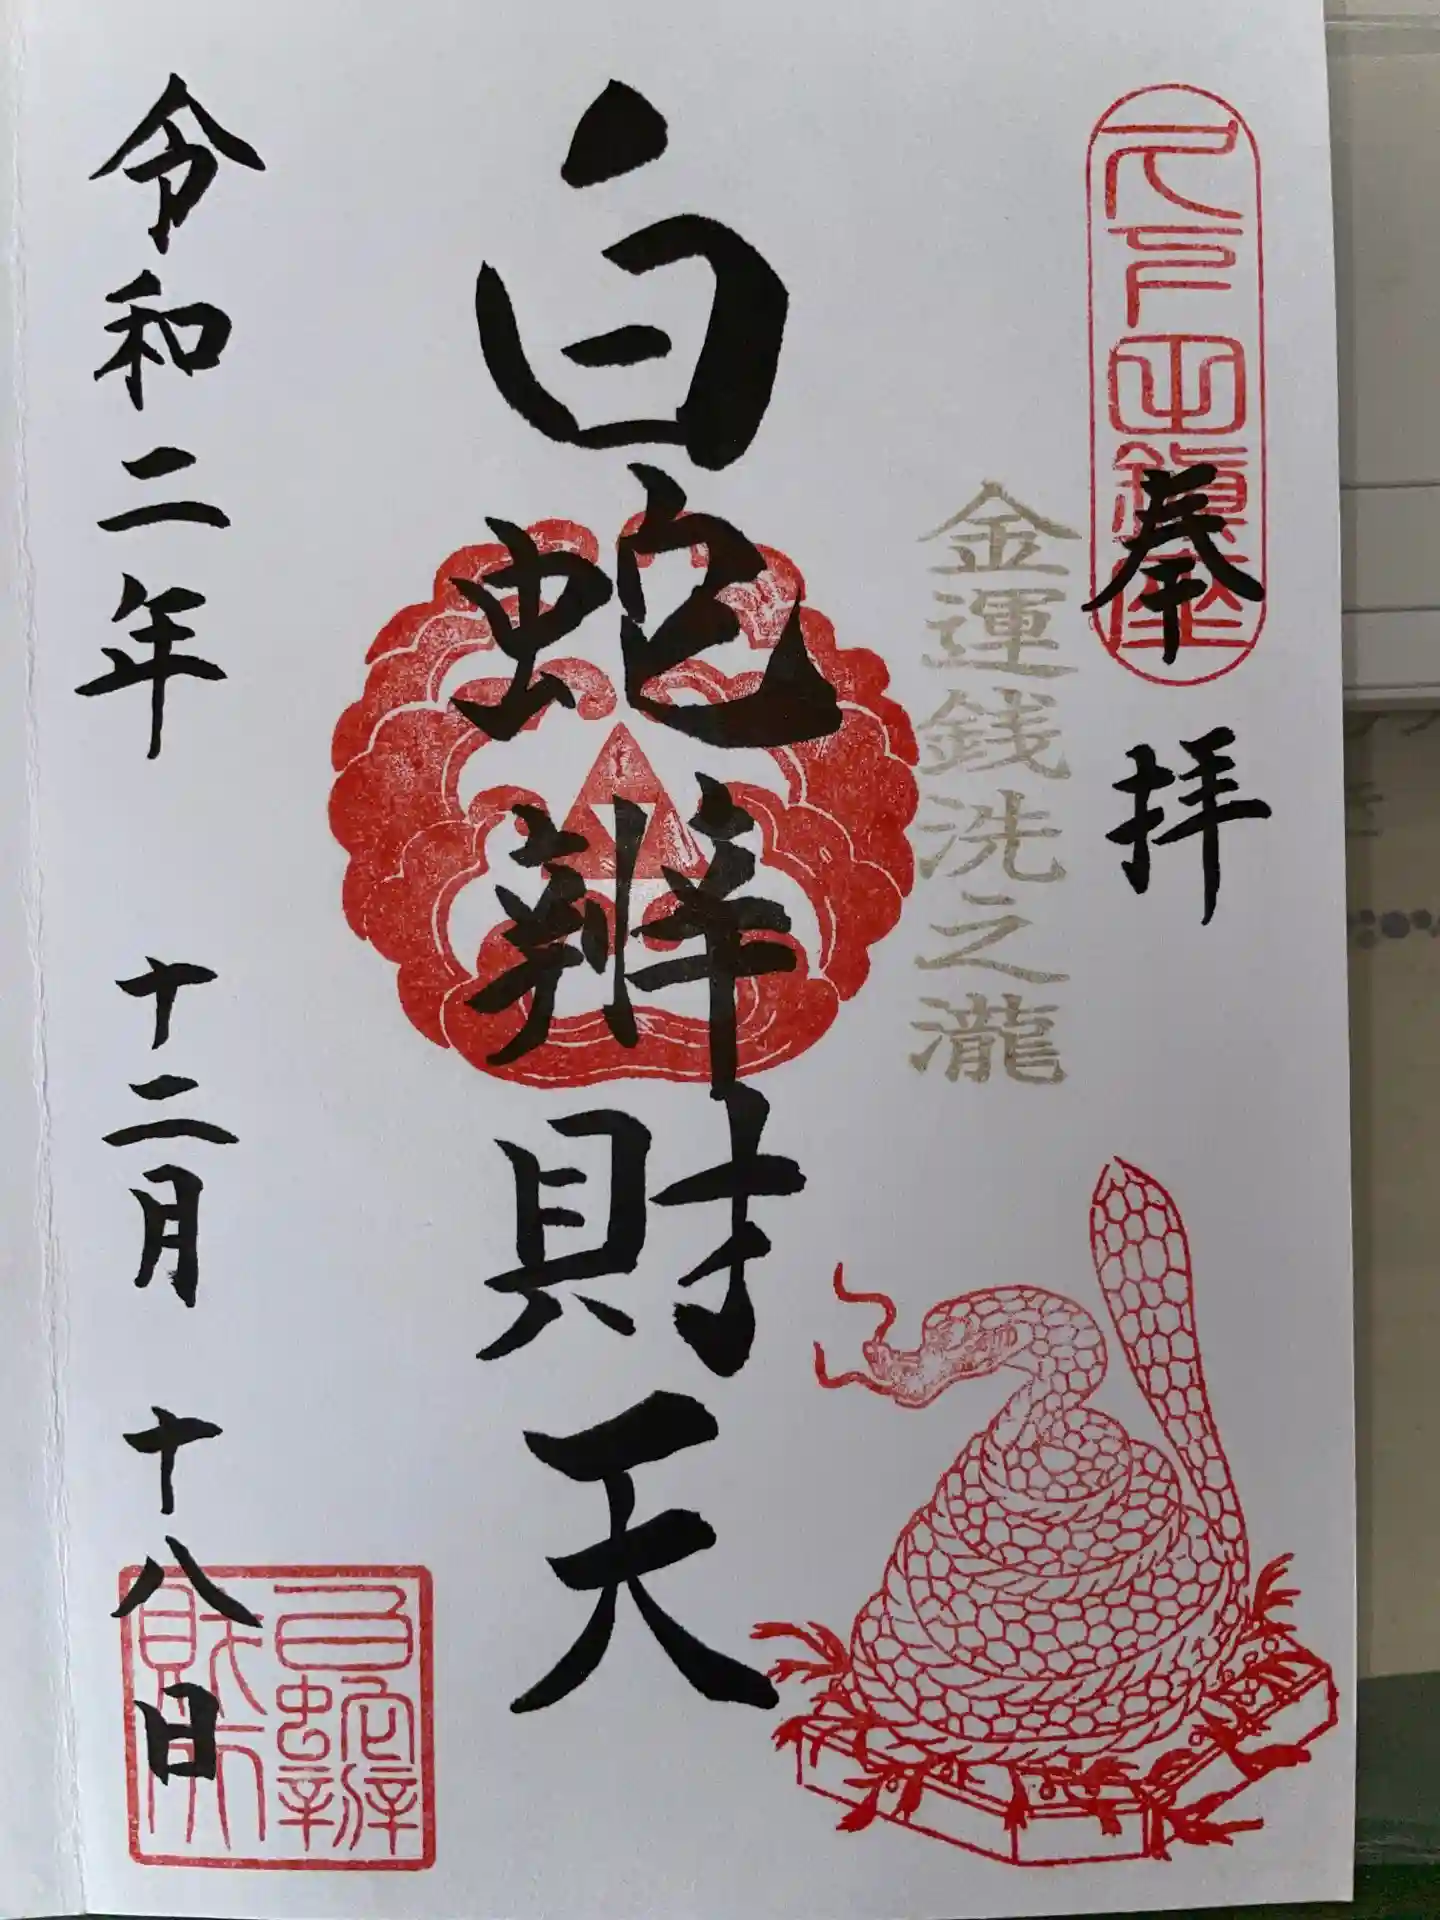 奉拝
金運銭洗之瀧
白蛇辨財天
令和二年 十二月 十八日
白蛇辨財天